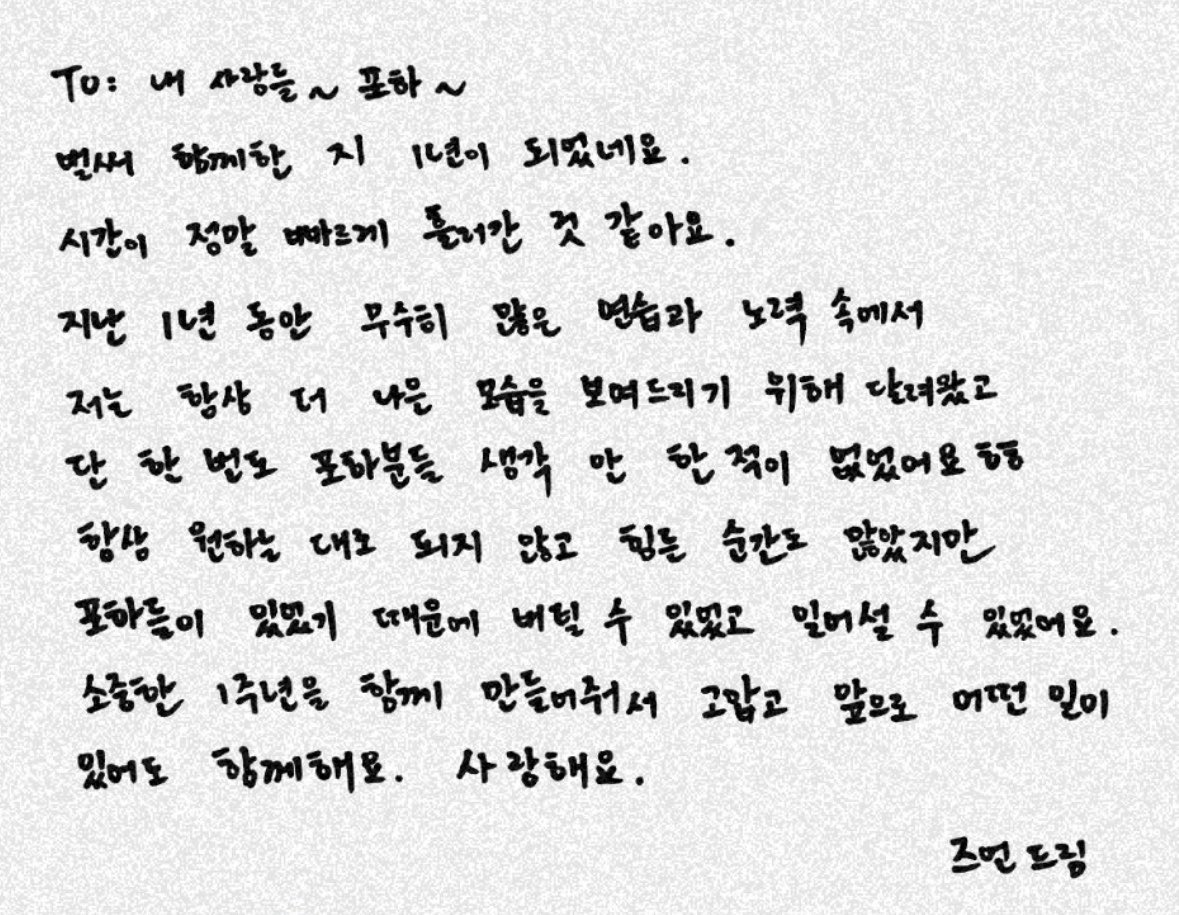 To: 내 사랑들~ 포하~
벌써 함께한 지 1년이 되었네요.
시간이 정말 빠르게 흘러간 것 같아요.
지난 1년 동안 무수히 많은 연습과 노력 속에서
저는 항상 더 나은 모습을 보여드리기 위해 달려왔고
단 한 번도 포하분들 생각 안 한 적이 없었어요 ㅎㅎ
항상 원하는 대로 되지 않고 힘든 순간도 많았지만
포하들이 있었기 때문에 버틸 수 있었고 일어설 수 있었어요.
소중한 1주년을 함께 만들어줘서 고맙고 앞으로 어떤 일이
있어도 함께해요. 사랑해요.
즈언 드림